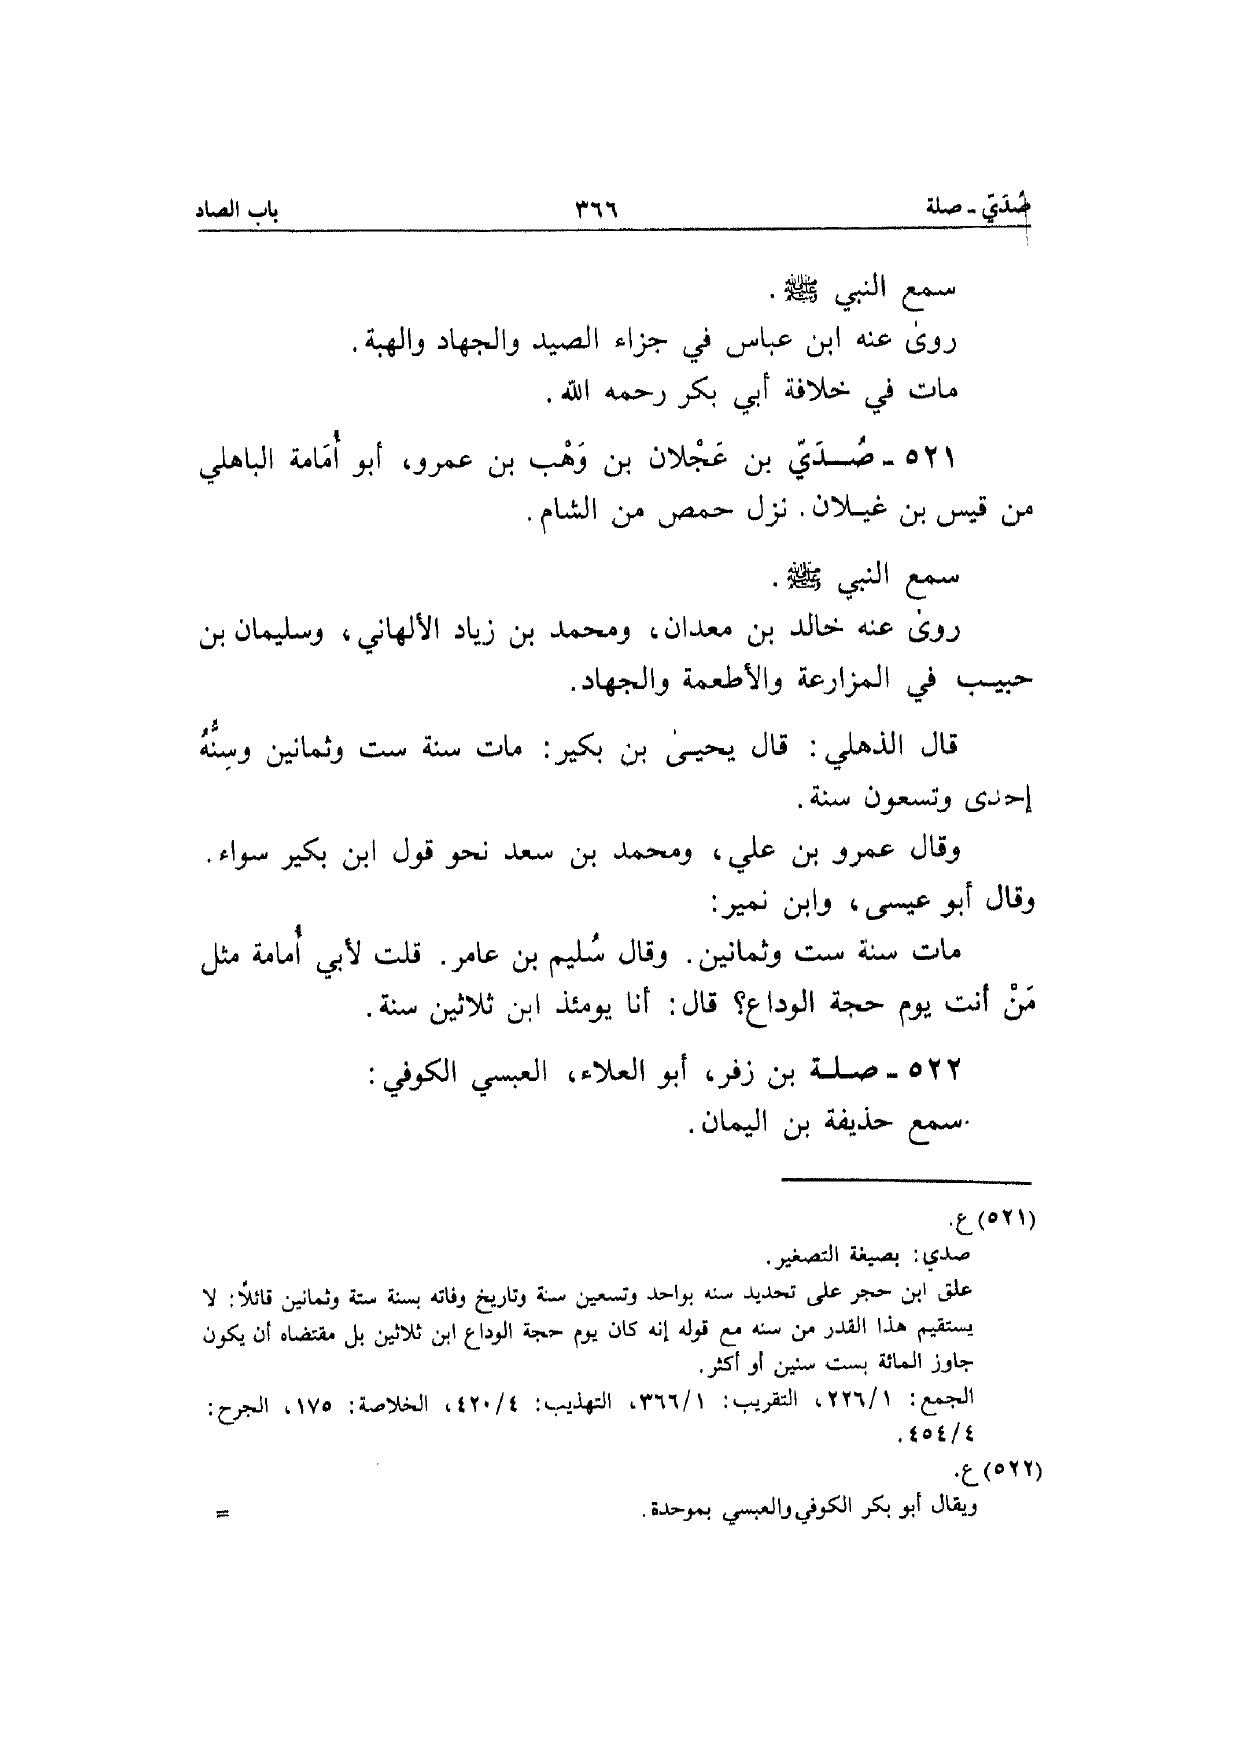 صُدَيّ - صلة ٣٦٦ باب الصاد
سمع النبي ﷺ.
روىٰ عنه ابن عباس في جزاء الصيد والجهاد والهبة.
مات في خلافة أبي بكر رحمه الله.
٥٢١ - صُـدَيّ بن عَجْلان بن وَهْب بن عمرو، أبو أُمَامة الباهلي
من قيس بن غيلان. نزل حمص من الشام.
سمع النبي ﷺ.
روىٰ عنه خالد بن معدان، ومحمد بن زياد الألهاني، وسليمان بن
حبيب في المزارعة والأطعمة والجهاد.
قال الذهلي: قال يحيىٰ بن بكير: مات سنة ست وثمانين وسِنُّهُ
إحدى وتسعون سنة.
وقال عمرو بن علي، ومحمد بن سعد نحو قول ابن بكير سواء.
وقال أبو عيسى، وابن نمير:
مات سنة ست وثمانين. وقال سُليم بن عامر. قلت لأبي أُمامة مثل
مَنْ أنت يوم حجة الوداع؟ قال: أنا يومئذ ابن ثلاثين سنة.
٥٢٢ - صلـة بن زفر، أبو العلاء، العبسي الكوفي:
سمع حذيفة بن اليمان.
(٥٢١) ع.
صدي: بصيغة التصغير.
علق ابن حجر على تحديد سنه بواحد وتسعين سنة وتاريخ وفاته بسنة ستة وثمانين قائلاً: لا
يستقيم هذا القدر من سنه مع قوله إنه كان يوم حجة الوداع ابن ثلاثين بل مقتضاه أن يكون
جاوز المائة بست سنين أو أكثر.
الجمع: ٢٢٦/١، التقريب: ٣٦٦/١، التهذيب: ٤٢٠/٤، الخلاصة: ١٧٥، الجرح:
٤٥٤/٤.
(٥٢٢) ع.
ويقال أبو بكر الكوفي والعبسي بموحدة. =